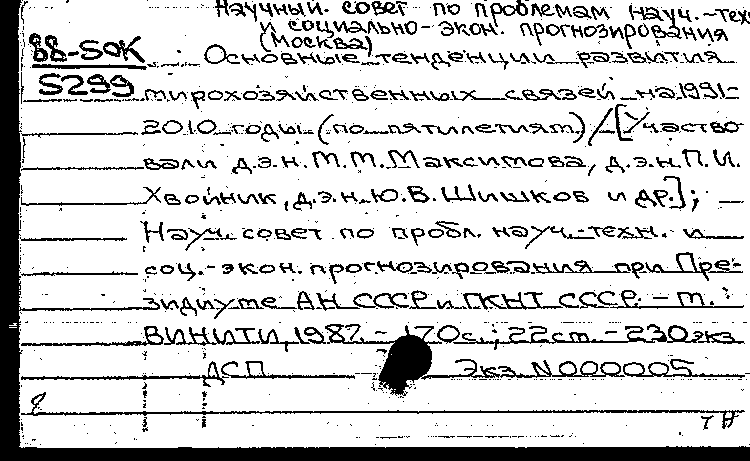 Научный. совет по проблемам науч.-тех
и социально-экон. прогнозирования
(Москва)
88-SOK
Основные тенденции развития
S299
мирохозяйственных связей на 1991-
2010 годы (по пятилетиям)/[Участво
вали д.э.н. М.М. Максимова, д.э.н. П.И.
Хвойник, д.э.н. Ю.В. Шишков и др.];
Науч. совет по пробл. науч.-техн. и
соц.-экон. прогнозирования при Пре-
зидиуме АН СССР и ГКНТ СССР. - М.:
ВИНИТИ, 1987. - 170 с.; 22 см. - 230 экз
ДСП Экз. N000005